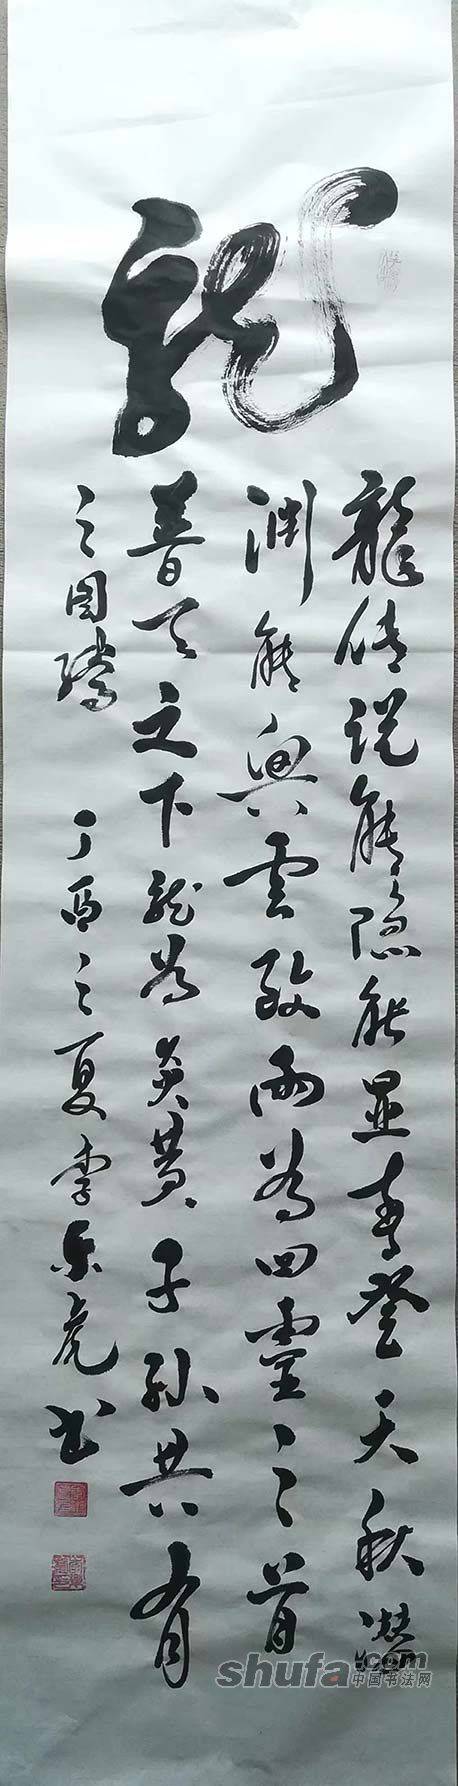 龍
龍传说能隐能显春登天秋潜
渊能興雲致雨为四靈之首
普天之下龙为炎黄子孙共有
之图腾
丁酉之夏李乐虎书
shufa.com
中国书法网